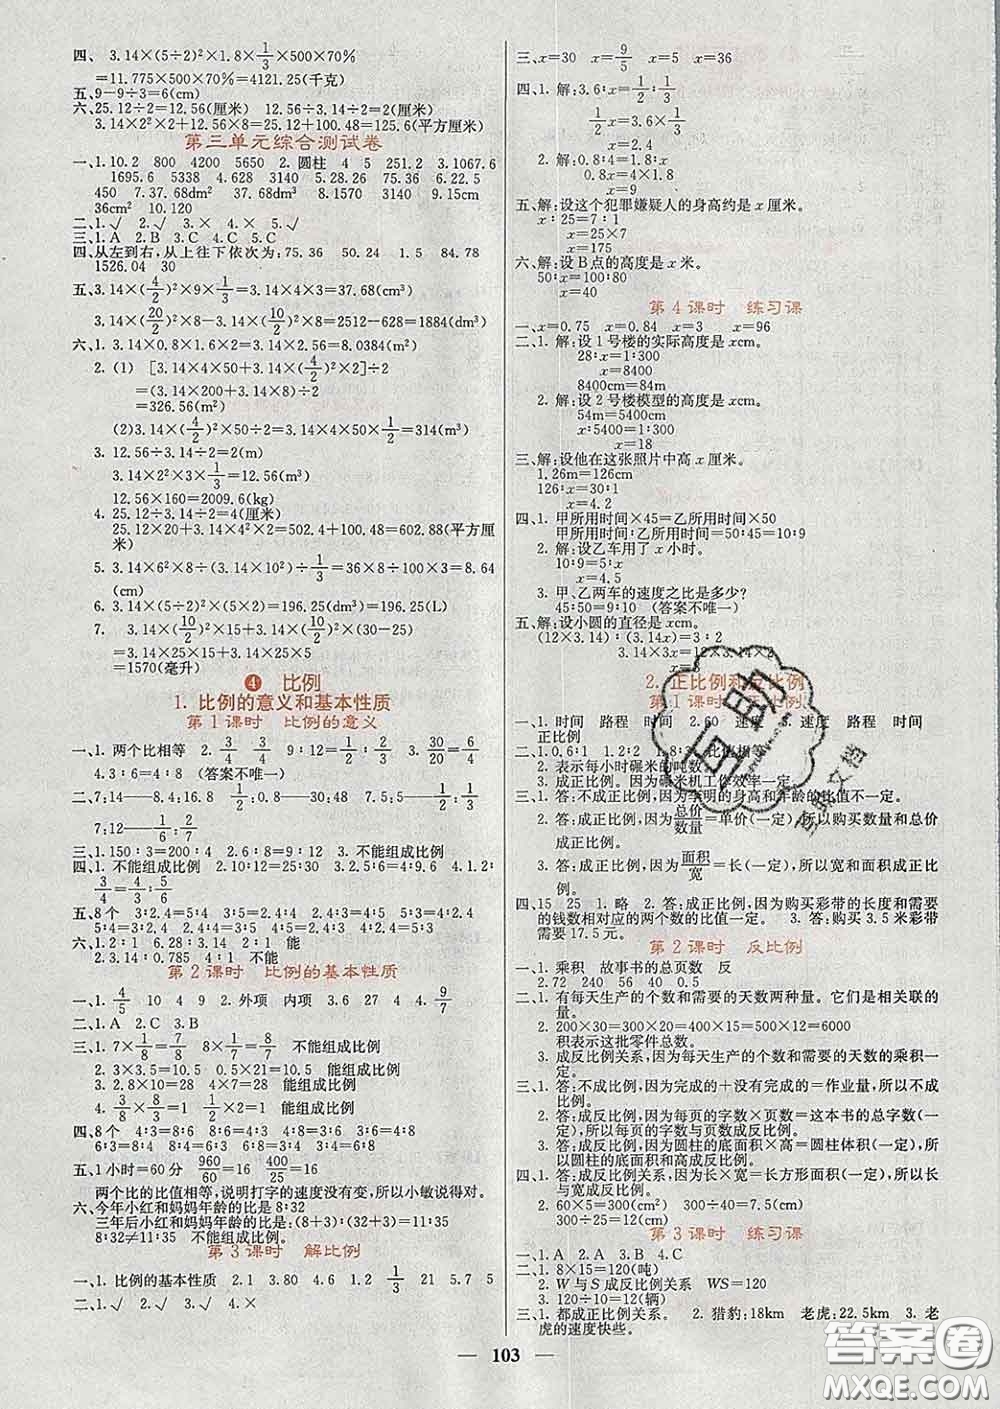 四、3.14×(5÷2)²×1.8×1/3×500×70%
=11.775×500×70%=4121.25(千克)
五、9-9÷3=6(cm)
六、25.12÷2=12.56(厘米) 12.56÷3.14÷2=2(厘米)
3.14×2²×2+12.56×8=25.12+100.48=125.6(平方厘米)
第三单元综合测试卷
一、1.10.2 800 4200 5650 2.圆柱 4 5 251.2 3.1067.6
1695.6 5338 4.628 3140 5.28.26 75.36 6.22.5
450 7.37.68dm² 37.68dm³ 8.1570 3140 9.15
36cm² 10.120
二、1.√ 2.√ 3.× 4.× 5.√
三、1.A 2.B 3.C 4.A 5.C
四、从左到右,从上往下依次为:75.36 50.24 1.5 84.78
1526.04 30
五、3.14×(4/2)²×9×1/3=3.14×4×3=37.68(cm³)
3.14×(20/2)²×8-3.14×(10/2)²×8=2512-628=1884(dm³)
六、1. 3.14×0.8×1.6×2=3.14×2.56=8.0384(m²)
2. (1) [3.14×4×50+3.14×(4/2)²×2]÷2
=(3.14×200+3.14×8)÷2
=326.56(m²)
(2)3.14×(4/2)²×50×1/2=3.14×4×50×1/2=314(m³)
3. 12.56÷3.14÷2=2(m)
3.14×2²×3×1/3=12.56(m³)
12.56×160=2009.6(kg)
4. 25.12÷3.14÷2=4(厘米)
25.12×20+3.14×4²×2=502.4+100.48=602.88(平方厘米)
5. 3.14×6²×8÷(3.14×10²×1/3)=36×8÷100×3=8.64
(cm)
6. 3.14×(5÷2)²×(5×2)=196.25(dm³)=196.25(L)
7. 3.14×(10/2)²×15+3.14×(10/2)²×(30-25)
=3.14×25×15+3.14×25×5
=1570(毫升)
4 比例
1. 比例的意义和基本性质
第1课时 比例的意义
一、1.两个比相等 2.3/4 3/4 9∶12=1/2∶2/3 3.30/20=6/4
4.3∶6=4∶8 (答案不唯一)
二、7∶14——8.4∶16.8 1/2∶0.9——30∶18 7.5∶5——1/2∶1/3
7∶12——1/6∶2/7
三、1.150∶3=200∶4 2.6∶8=9∶12 3.不能组成比例
四、1.不能组成比例 2.10∶12=25∶30 3.2.5∶6=4∶9.6 4.1.2∶
3/4=4/3∶5/6
五、8个 3∶2.4=5∶4 3∶5=2.4∶4 4∶5=2.4∶3
4∶2.4=5∶3 5∶3=4∶2.4 5∶4=3∶2.4 2.4∶3=4∶5 2.4∶4=3∶5
六、1.2∶1 6.28∶3.14 2∶1 能
2.3.14∶0.785 4∶1 不能
第2课时 比例的基本性质
一、1.4/5 10 4 9 2.外项 内项 3.6 27 4 4.9/7
二、1.A 2.C 3.B
三、1.7×1/8=7/8 8×1/7=8/7 不能组成比例
2. 3×3.5=10.5 0.5×21=10.5 能组成比例
3. 2.8×10=28 4×7=28 能组成比例
4. 3/8×8/3=1 1/2×2=1 能组成比例
四、8个 4∶3=8∶6 8∶6=4∶3 4∶8=3∶6 8∶4=6∶3
6∶3=8∶4 8∶4=6∶3 3∶4=6∶8 3∶6=4∶8
五、1小时=60分 960/60=16 400/25=16
两个比的比值相等,说明打字的速度没有变,所以小敏说得对。
六、今年小红和妈妈年龄的比是8∶32
三年后小红和妈妈年龄的比是:(8+3)∶(32+3)=11∶35
8∶32≠11∶35 不能组成比例。
第3课时 解比例
一、1.比例的基本性质 2.1 3.80 4.6 1.2 1/3 21 5.7 5
二、1.√ 2.√ 3.√ 4.×
三、x=30 x=9/5 x=5 x=36
四、1. 解:3.6∶x=1/2∶1/3
1/2x=3.6×1/3
x=2.4
2. 解:0.8∶4=1.8∶x
0.8x=4×1.8
x=9
五、解:设这个犯罪嫌疑人的身高约是x厘米。
x∶25=7∶1
x=25×7
x=175
六、解:设B点的高度是x米。
50∶x=100∶80
x=40
第4课时 练习课
一、x=0.75 x=0.84 x=3 x=96
二、1. 解:设1号楼的实际高度是xcm。
28∶x=1∶300
x=8400
8400cm=84m
2. 解:设2号楼模型的高度是xcm。
54m=5400cm
x∶5400=1∶300
x=18
三、解:设他在这张照片中高x厘米。
1.26m=126cm
126∶x=30∶1
x=4.2
四、1. 甲所用时间×45=乙所用时间×50
甲所用时间∶乙所用时间=50∶45=10∶9
2. 解:设乙车用了x小时。
10∶9=5∶x
x=4.5
3. 甲、乙两车的速度之比是多少?
45∶50=9∶10 (答案不唯一)
五、解:设小圆的直径是xcm。
(12×3.14)∶(3.14x)=3∶2
3.14×3x=12×3.14×2
2. 正比例和反比例
第1课时
一、1.时间 路程 时间 2.60 速度 3.速度 路程 时间
正比例
二、1.0.6∶1 1.2∶2
2. 表示每小时碾米的吨数
3. 成正比例。因为碾米机工作效率一定。
三、1. 答:不成正比例,因为李明的身高和年龄的比值不一定。
2. 答:成正比例,因为总价/数量=单价(一定),所以购买数量和总价
成正比例。
3. 答:成正比例,因为面积/宽=长(一定),所以宽和面积成正比
例。
四、15 25 1.略 2.答:成正比例,因为购买彩带的长度和需要
的钱数相对应的两个数的比值一定。 3.答:购买3.5米彩带
需要17.5元。
第2课时 反比例
一、1.乘积 故事书的总页数 反
2.72 240 56 40 0.5
二、1. 有每天生产的个数和需要的天数两种量。它们是相关联的
量。
2. 200×30=300×20=400×15=500×12=6000
积表示这批零件总数。
3. 成反比例关系,因为每天生产的个数和需要的天数的乘积一
定。
三、1. 答:不成比例,因为完成的+没有完成的=作业量,所以不成比
例。
2. 答:成反比例,因为每页的字数×页数=这本书的总字数(一
定),所以每页的字数与页数成反比例。
3. 答:成反比例,因为圆柱的底面积×高=圆柱体积(一定),所
以圆柱的底面积和高成反比例。
四、1. 答:成反比例关系,因为长×宽=长方形面积(一定),所以长
与宽成反比例。
2. 60×5=300(cm²) 300÷40=7.5(cm)
300÷25=12(cm)
第3课时 练习课
一、1.A 2.B 3.B 4.C
二、1. 8×15=120(吨)
2. W与S成反比例关系 WS=120
3. 120÷10=12(辆)
三、1. 都成正比例关系。 2. 猎豹:18km 老虎:22.5km 3. 老
虎的速度快些。
103
互助
互助文档
答案圈
MXQE.COM